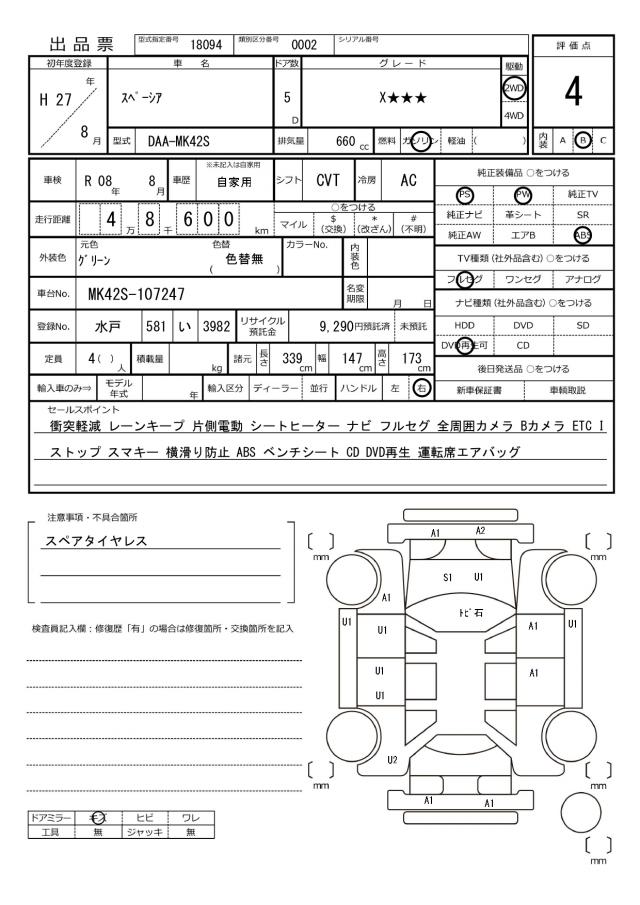 出品票 型式指定番号 18094 類別区分番号 0002 シリアル番号
初年度登録 車 名 ドア数 グレード 駆動 評価点
H 27 年 8 月 スペーシア 5 D X★★★ 2WD 4WD 4
型式 DAA-MK42S 排気量 660 cc 燃料 ガソリン 軽油 ( ) 内装 A B C
車検 R 08 年 8 月 車歴 ※未記入は自家用 自家用 シフト CVT 冷房 AC
走行距離 4 万 8 千 6 0 0 km ○をつける
マイル $ (交換) * (改ざん) # (不明)
外装色 元色 グリーン 色替 ( 色替無 ) カラーNo. 内装色
車台No. MK42S-107247 名変期限 月 日
登録No. 水戸 581 い 3982 リサイクル預託金 9,290円預託済 未預託
定員 4( ) 人 積載量 kg 諸元 長さ 339 cm 幅 147 cm 高さ 173 cm
輸入車のみ⇒ モデル年式 年 輸入区分 ディーラー 並行 ハンドル 左 右
純正装備品 ○をつける
PS PW 純正TV
純正ナビ 革シート SR
純正AW エアB ABS
TV種類(社外品含む)○をつける
フルセグ ワンセグ アナログ
ナビ種類(社外品含む)○をつける
HDD DVD SD
DVD再生可 CD
後日発送品 ○をつける
新車保証書 車輌取説
セールスポイント
衝突軽減 レーンキープ 片側電動 シートヒーター ナビ フルセグ 全周囲カメラ Bカメラ ETC I
ストップ スマキー 横滑り防止 ABS ベンチシート CD DVD再生 運転席エアバッグ
注意事項・不具合箇所
スペアタイヤレス
検査員記入欄:修復歴「有」の場合は修復箇所・交換箇所を記入
ドアミラー キズ ヒビ ワレ
工具 無 ジャッキ 無
A1 A2
〔 〕 mm 〔 〕 mm
S1 U1
A1
トビ石
U1 U1 A1 U1
U1 A1
U1
U2
〔 〕 mm 〔 〕 mm
A1 A1
〔 〕 mm